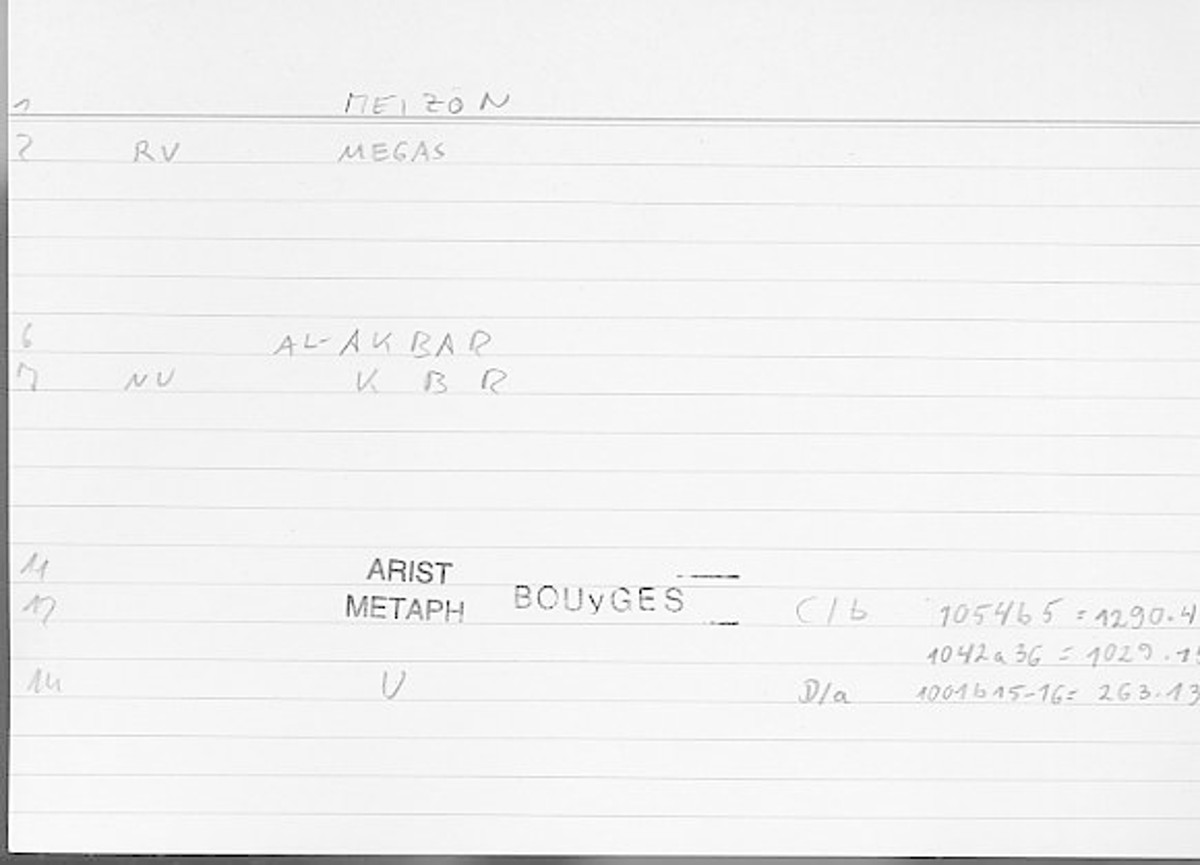 1 MEIZON
2 RV MEGAS
6 AL-AKBAR
7 NU K B R
11 ARIST
12 METAPH BOUyGES C/b 1054b5 = 1290.4
1042a36 = 1029.15
14 U D/a 1001b15-16= 263.13